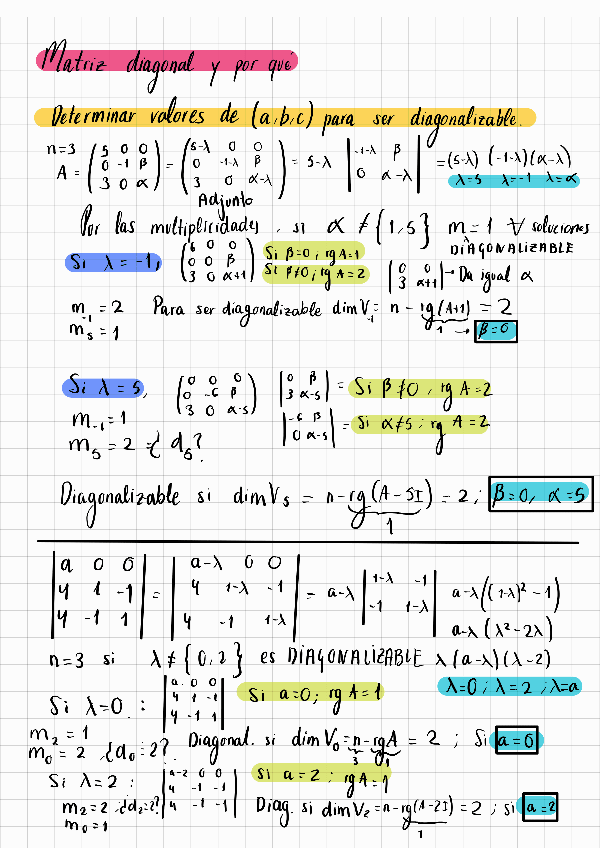 Matriz diagonal y por qué
Determinar valores de (a,b,c) para ser diagonalizable.
n=3 A = (5 0 0; 0 -1 β; 3 0 α) = (5-λ 0 0; 0 -1-λ β; 3 0 α-λ) = 5-λ |-1-λ β; 0 α-λ| = (5-λ) (-1-λ)(α-λ)
λ=5 λ=-1 λ=α
Adjunto
Por las multiplicidades, si α ≠ {1,5} m=1 ∀ soluciones
DIAGONALIZABLE
Si λ = -1, (6 0 0; 0 0 β; 3 0 α+1) Si β=0; rg A=1
Si β≠0; rg A=2 |0 0; 3 α+1| → Da igual α
m₋₁ = 2 Para ser diagonalizable dim V₋₁ = n - rg(A+1) = 2
m₅ = 1 1 → β=0
Si λ = 5, (0 0 0; 0 -6 β; 3 0 α-5) |0 β; 3 α-5| = Si β≠0, rg A=2
m₋₁ = 1 |-6 β; 0 α-5| = Si α≠5; rg A=2
m₅ = 2 = ¿ d₅?
Diagonalizable si dim V₅ = n-rg(A-5I) = 2; β=0, α=5
1
|a 0 0; 4 1 -1; 4 -1 1| = |a-λ 0 0; 4 1-λ -1; 4 -1 1-λ| = a-λ |1-λ -1; -1 1-λ| a-λ((1-λ)² - 1)
a-λ(λ²-2λ)
n=3 si λ≠{0,2} es DIAGONALIZABLE λ(a-λ)(λ-2)
λ=0; λ=2; λ=a
Si λ=0: |a 0 0; 4 1 -1; 4 -1 1| Si a=0; rg A=1
m₂ = 1
m₀ = 2 ¿d₀=2? Diagonal. si dim V₀ = n-rgA = 2; Si a=0
3 1
Si λ=2: |a-2 0 0; 4 -1 -1; 4 -1 -1| Si a=2; rg A=1
m₂=2 ¿d₂=2? Diag. si dim V₂ = n-rg(A-2I) = 2; si a=2
m₀=1 1